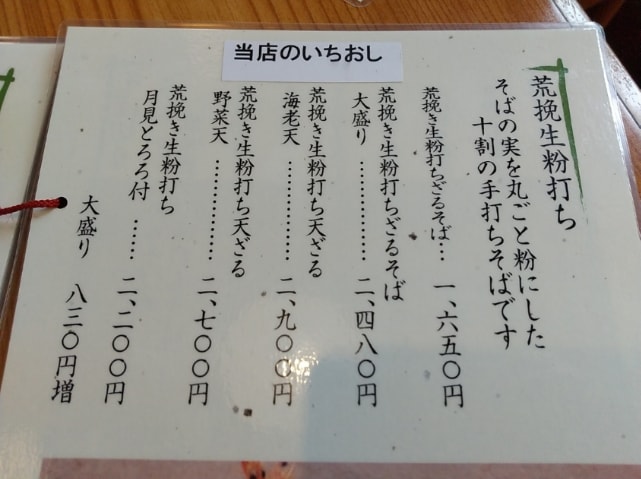 当店のいちおし
荒挽生粉打ち
そばの実を丸ごと粉にした
十割の手打ちそばです
荒挽き生粉打ちざるそば… 一、六五〇円
荒挽き生粉打ちざるそば
大盛り………… 二、四八〇円
荒挽き生粉打ち天ざる
海老天………… 二、九〇〇円
荒挽き生粉打ち天ざる
野菜天………… 二、七〇〇円
荒挽き生粉打ち
月見とろろ付…… 二、二〇〇円
大盛り 八三〇円増